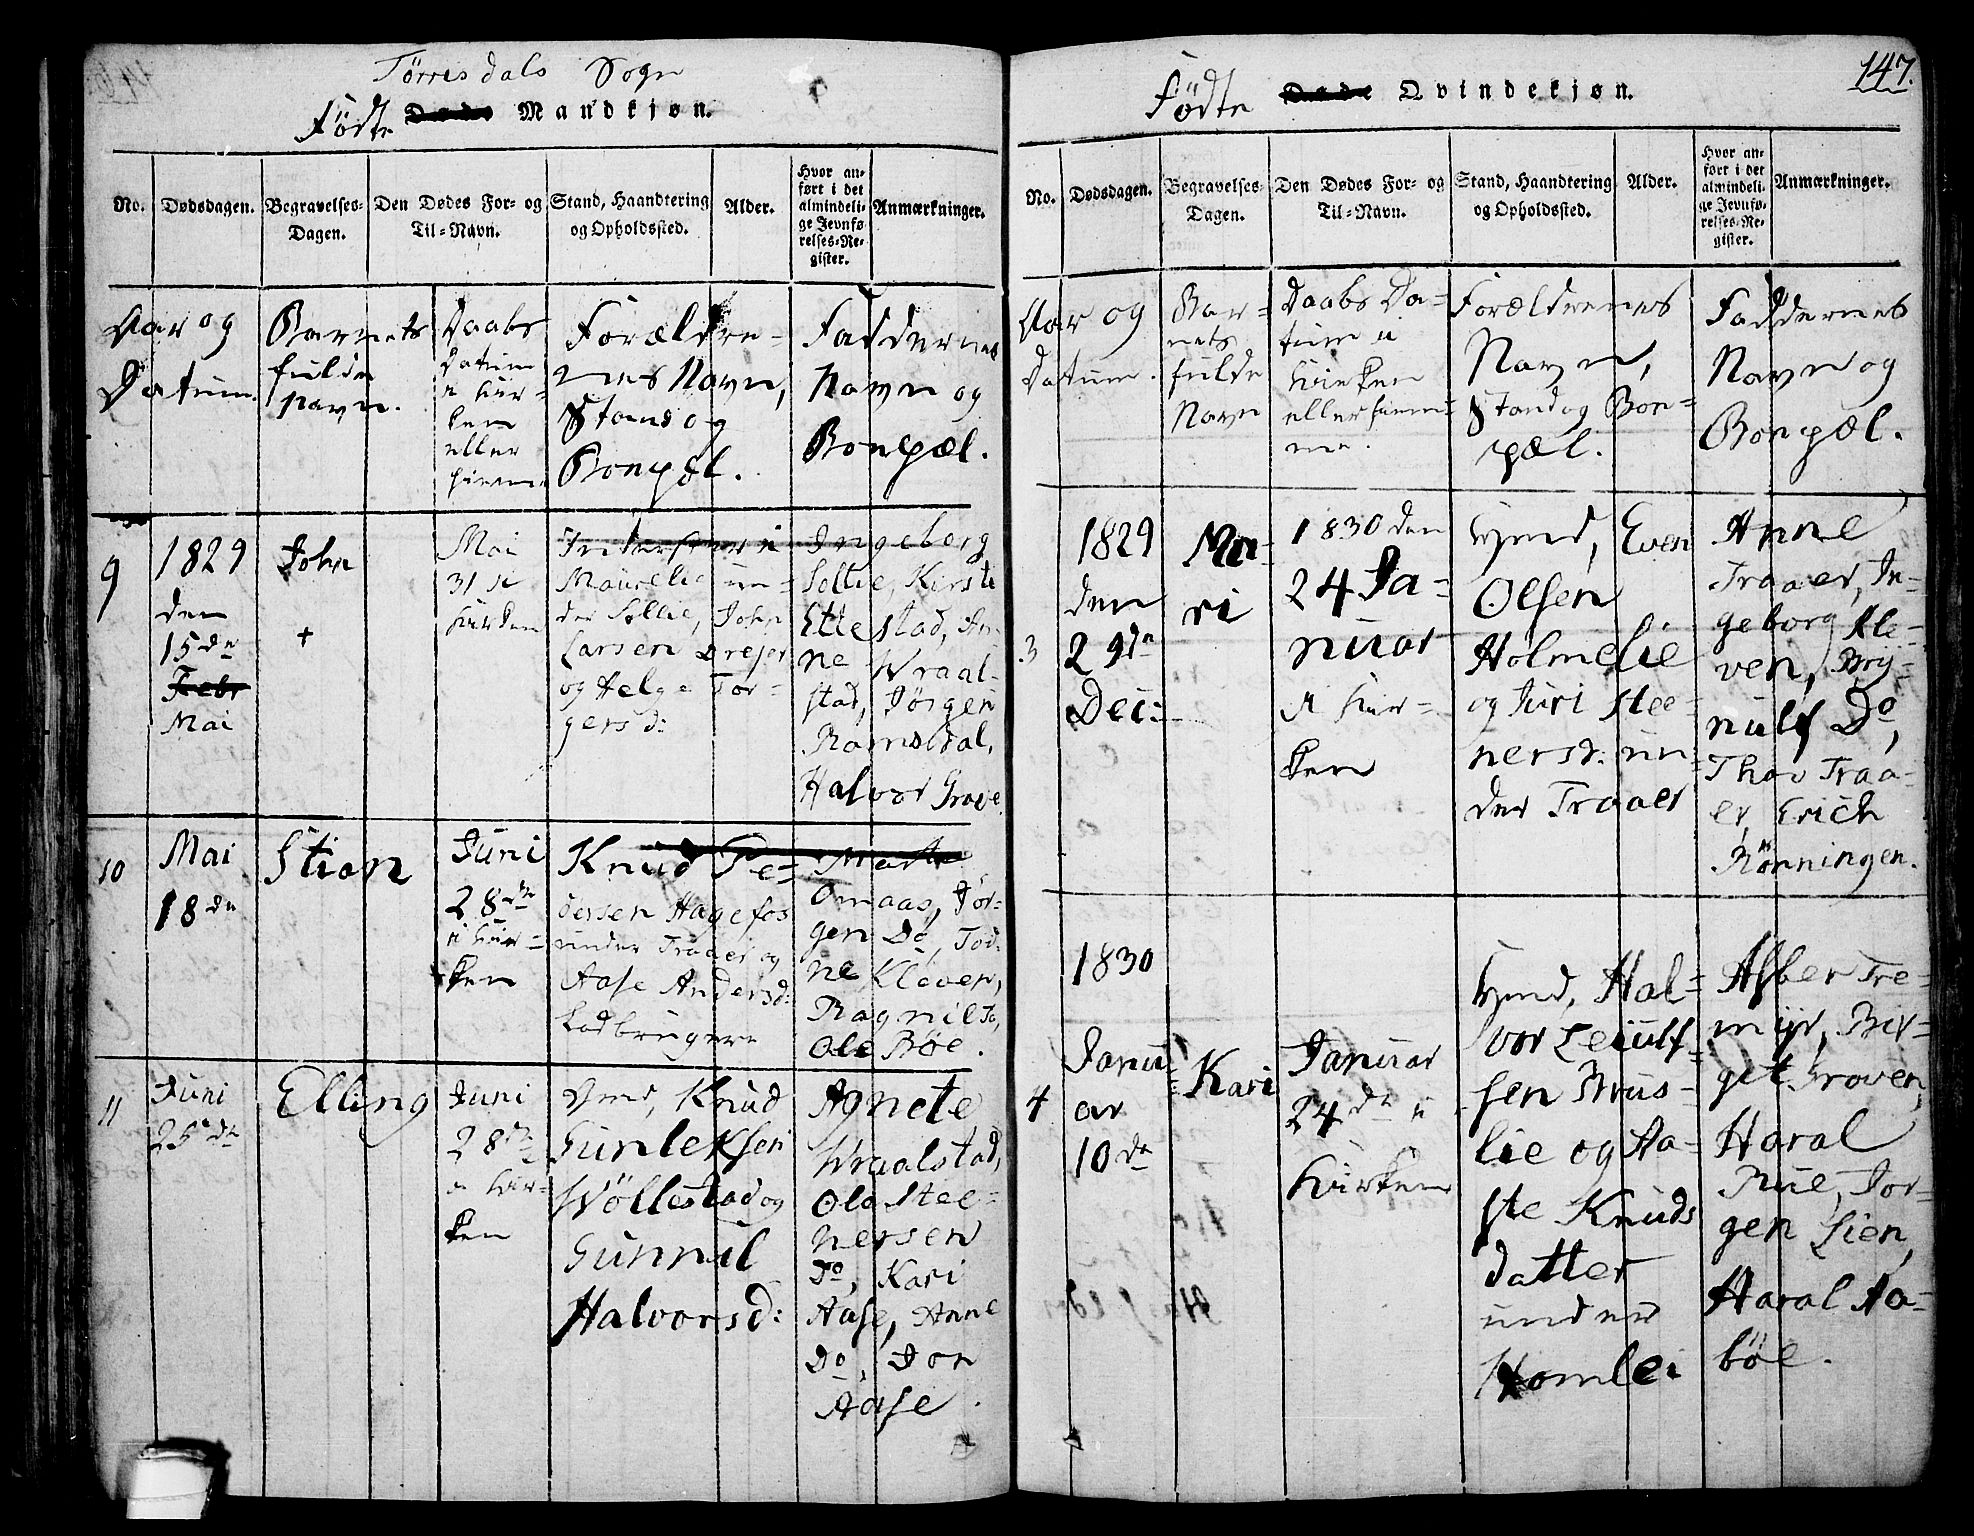 Tørresdals Sogn
Fødte Døde Mandkjøn.
No.
Dødsdagen.
Begravelses-
Dagen.
Den Dødes For- og
Til-Navn.
Stand, Haandtering
og Opholdssted.
Alder.
Hvor an-
ført i det
almindeli-
ge Jevnfø-
relses-Re-
gister.
Anmærkninger.
Aar og
Datum.
Barnets
fulde
Navn.
Daabs
Datum
i Kir-
ken
eller
hiemme
Forældre-
nes Navn,
Stand og
Bopæl.
Faddernes
Navn og
Bopæl.
9
1829
den
15de
Febr
Mai
John
+
Mai
31 i
Kirken
under Sollie, John
Larsen Drejer
og Helge Tor-
gersd:
Ingeberg
Sollie, Kirsti
Ettestad, An-
ne Wraal-
stad, Jørgen
Ramsdal,
Halvor Grave
10
Mai
18de
Stian
Juni
28de
i Kir-
ken
Knud Pe-
dersen Hagefos
under Traaer og
Aase Andersd:
Ladbrugere
Omaas, Jør-
gen Do, Tod-
ne Kleven,
Ragnil To,
Ole Bøe.
11
Juni
25de
Elling
Juni
28de
i Kir-
ken
Gmd, Knud
Gunleksen
Wöllestad og
Gunnil
Halvorsd:
Agnete
Wraalstad,
Ola Stee-
nersen
Do, Kari
Aase, Anne
Do, Jon
Aase.
147.
Fødte Døde Qvindekjøn.
No.
Dødsdagen.
Begravelses-
Dagen.
Den Dødes For- og
Til-Navn.
Stand, Haandtering
og Opholdssted.
Alder.
Hvor an-
ført i det
almindeli-
ge Jevnfø-
relses-Re-
gister.
Anmærkninger.
Aar og
Datum.
Bar-
nets
fulde
Navn
Daabs Da-
tum i
Kirken
eller hiem-
me.
Forældrenes
Navn,
Stand og Bo-
pæl.
Faddernes
Navn og
Bopæl.
3
1829
den
29de
Dec:
Ma-
ri
1830 den
24 Ja-
nuar
i Kir-
ken
Gmd, Even
Olsen
Holmelie
og Juri Stee-
nersd: un-
der Traaer
Anne
Traaer, In-
geborg Kle-
ven, Bry-
nulf Do,
Thov Traa-
er, Erich
Rønningen.
4
1830
Janu-
ar
10de
Kari
Januar
24de i
Kirken
Gmd, Hal-
vor Leiulf-
sen Brus-
lie og Aa-
ste Knuds
datter
under
Homlei
Asber Tre-
myr, Bir-
get Groven,
Haral
Rue, Jor-
gen Lien,
Haral Aa-
bøe.